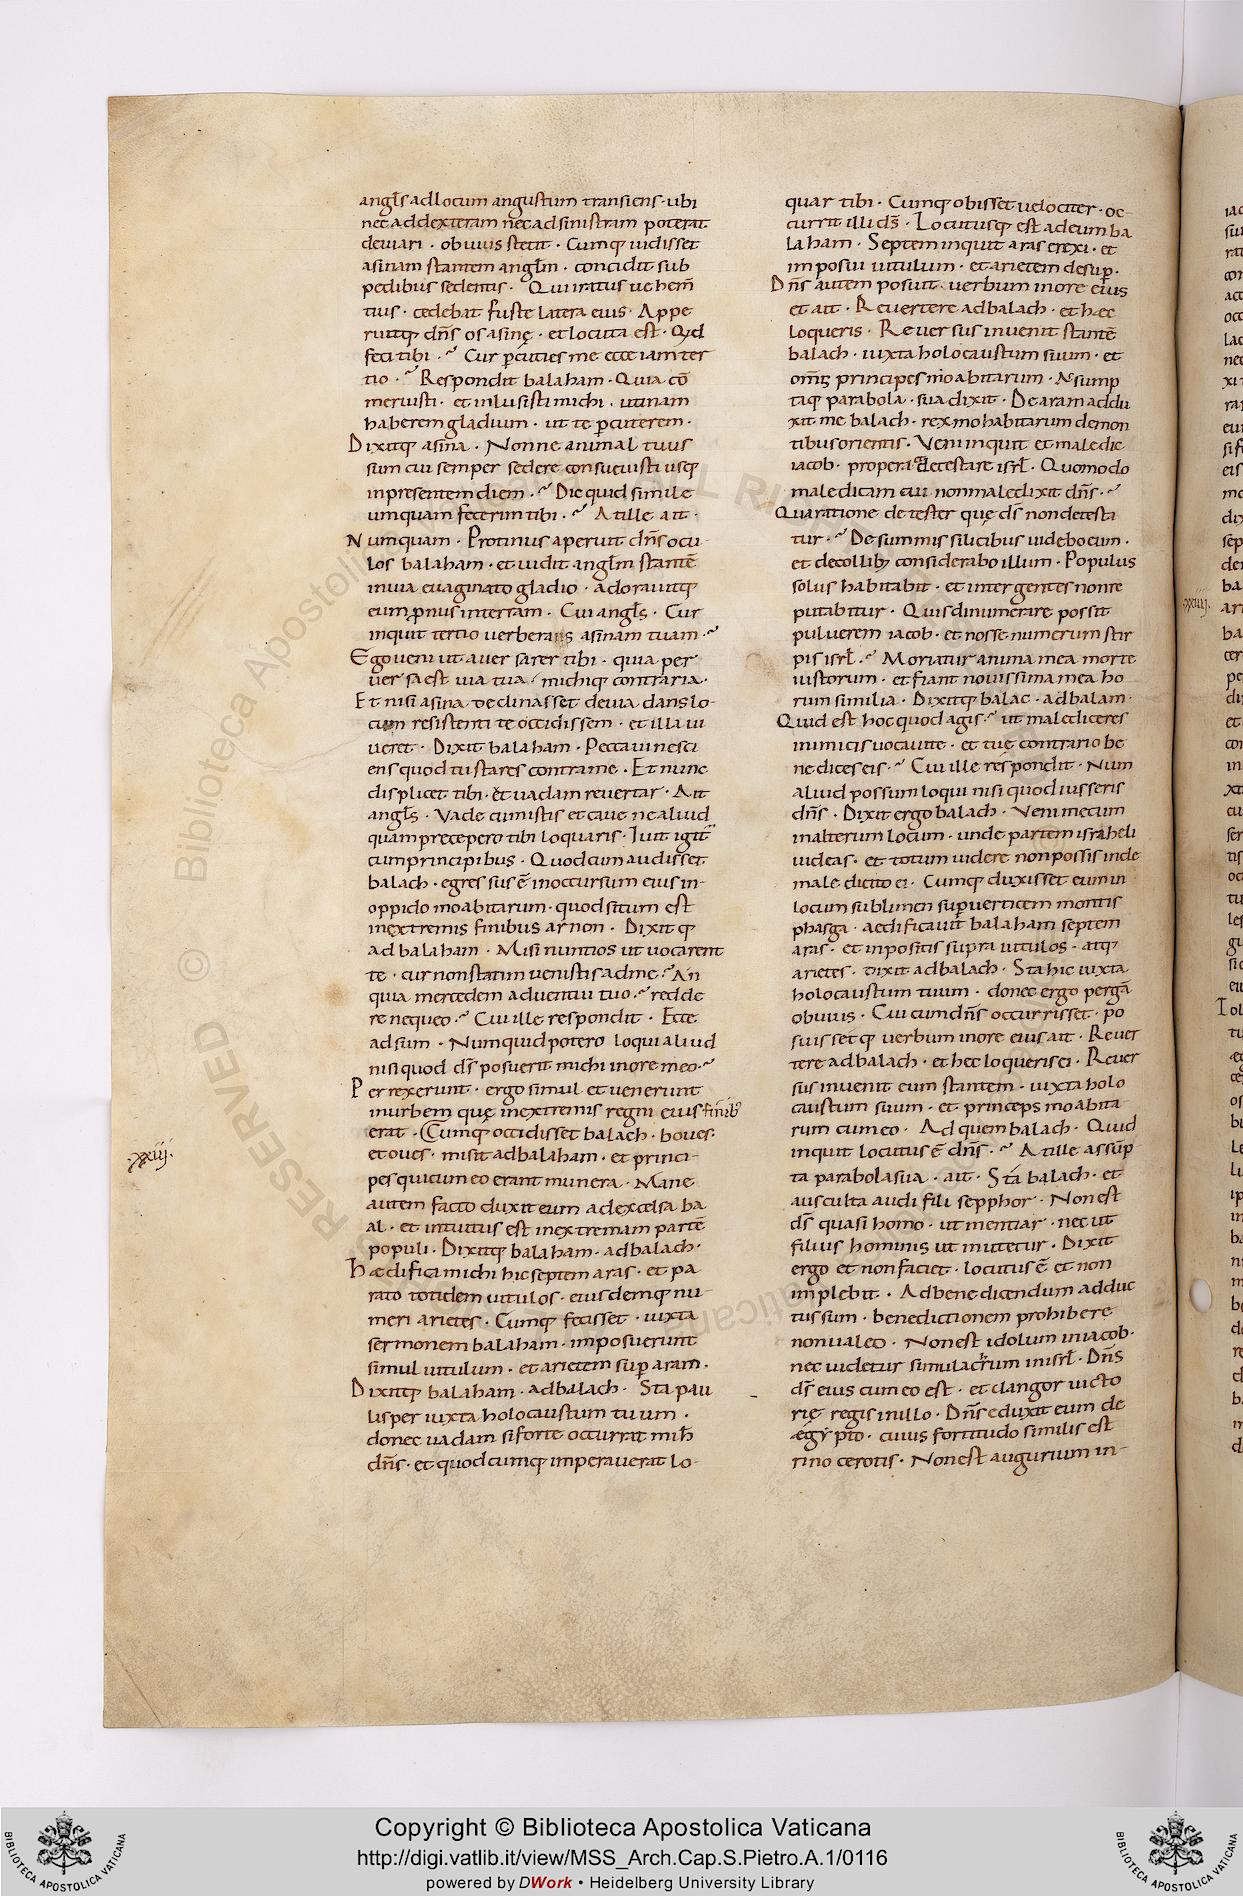 angłs ad locum angustum transiens · ubi
nec ad dexteram nec ad sinistram poterat
deuiari · obuius stetit · Cumq; uidisset
asinam stantem angłm · concidit sub
pedibus sedentis · Qui iratus uehem̄
tius · cedebat fuste latera eius · Appe
ruitq; dn̄s os asinę · et locuta est · Qd
feci tibi · Cur p̄cuties me ecce iam ter
tio · Respondit balaham · Quia cō
meruisti · et inlusisti michi · utinam
haberem gladium · ut te p̄cuterem ·
Dixitq; asina · Nonne animal tuus
sum cui semper sedere consueuisti usq;
in presentem diem · Dic quid simile
umquam fecerim tibi · At ille ait ·
Numquam · Protinus aperuit dn̄s ocu
los balaham · et uidit angłm stantē
in uia euaginato gladio · adorauitq;
eum p̄nus in terram · Cui angłs · Cur
inquit tertio uerberans asinam tuam
Ego ueni ut auersarer tibi · quia per
uersa est uia tua · michiq; contraria ·
Et nisi asina declinasset deuia dans lo-
cum resistenti te occidissem · et illa ui
ueret · Dixit balaham · Peccaui nesci
ens quod tu stares contra me · Et nunc
displicet tibi · et uadam reuertar · Ait
angłs · Vade cum istis et caue ne aliud
quam precepero tibi loquaris · Iuit igit̄
cum principibus · Quod cum audisset
balach · egressus ē in occursum eius in-
oppido moabitarum · quod situm est
in extremis finibus arnon · Dixitq;
ad balaham · Misi nuntios ut uocarent
te · cur non statim uenisti ad me · An
quia mercedem aduentui tuo · redde
re nequeo · Cui ille respondit · Ecce
adsum · Numquid potero loqui aliud
nisi quod ds̄ posuerit michi in ore meo ·
Perrexerunt · ergo simul et uenerunt
in urbem quę in extremis regni eius finib;
erat · Cumq; occidisset balach · boues ·
·xxiij·
et oues · misit ad balaham · et princi-
pes qui cum eo erant munera · Mane
autem facto duxit eum ad excelsa ba
al · et intuitus est in extremam partē
populi · Dixitq; balaham · ad balach ·
Hædifica michi hic septem aras · et pa
rato totidem uitulos · eiusdemq; nu-
meri arietes · Cumq; fecisset · iuxta
sermonem balaham · imposuerunt
simul uitulum · et arietem sup̄ aram ·
Dixitq; balaham · ad balach · Sta pau
lisper iuxta holocaustum tuum ·
donec uadam si forte occurrat mih̄
dn̄s · et quodcumq; imperauerat lo-
quar tibi · Cumq; obisset uelociter · oc-
currit illi ds̄ · Locutusq; est ad eum ba
laham · Septem inquit aras erexi · et
imposui uitulum · et arietem desup̄ ·
Dn̄s autem posuit · uerbum in ore eius
et ait · Reuertere ad balach · et hæc
loqueris · Reuersus inuenit stantē
balach · iuxta holocaustum suum · et
omn̄s principes moabitarum · Asump
taq; parabola · sua dixit · De aram addu
xit me balach · rex mohabitarum de mon
tibus orientis · Veni inquit et maledic
iacob · propera detestare isrł · Quomodo
maledicam cui non maledixit dn̄s ·
Qua ratione detester quę ds̄ non detesta
tur · De summis silicibus uidebo eum ·
et de collib; considerabo illum · Populus
solus habitabit · et inter gentes non re
putabitur · Quis dinumerare possit
puluerem iacob · et nosse numerum stir
pis isrł · Moriatur anima mea morte
iustorum · et fiant nouissima mea ho
rum similia · Dixitq; balac · ad balam ·
Quid est hoc quod agis · ut malediceres
inimicis uocaui te · et tu e contrario be
nedices eis · Cui ille respondit · Num
aliud possum loqui nisi quod iusseris
dn̄s · Dixit ergo balach · Veni mecum
in alterum locum · unde partem israheli
uideas · et totum uidere non possis inde
maledicito ei · Cumq; duxisset eum in
locum sublimen sup̄ uerticem montis
phasga · aedificauit balaham septem
aras · et inpositis supra uitulos · atq;
arietes · dixit ad balach · Sta hic iuxta
holocaustum tuum · donec ergo pergā
obuius · Cui cum dn̄s occurrisset · po
suissetq; uerbum in ore eius ait · Reuer
tere ad balach · et hec loqueris ei · Reuer
sus inuenit eum stantem · iuxta holo
caustum suum · et princeps moabita
rum cum eo · Ad quem balach · Quid
inquit locutus ē dn̄s · At ille assūp
ta parabola sua · ait · Sta balach · et
ausculta audi fili sepphor · Non est
ds̄ quasi homo · ut mentiar · nec ut
filius hominis ut mutetur · Dixit
ergo et non faciet · locutus ē et non
implebit · Ad benedicendum adduc
tus sum · benedictionem prohibere
non ualeo · Non est idolum in iacob ·
nec uidetur simulacrum in isrł · Dn̄s
ds̄ eius cum eo est · et clangor uicto
rię regis in illo · Dn̄s eduxit eum de
ægypto · cuius fortitudo similis est
rinocerotis · Non est augurium in-
·xxiiij·
© Biblioteca Apostolica Vaticana
ALL RIGHTS RESERVED
Copyright © Biblioteca Apostolica Vaticana
http://digi.vatlib.it/view/MSS_Arch.Cap.S.Pietro.A.1/0116
powered by DWork • Heidelberg University Library
BIBLIOTECA APOSTOLICA VATICANA
BIBLIOTECA APOSTOLICA VATICANA